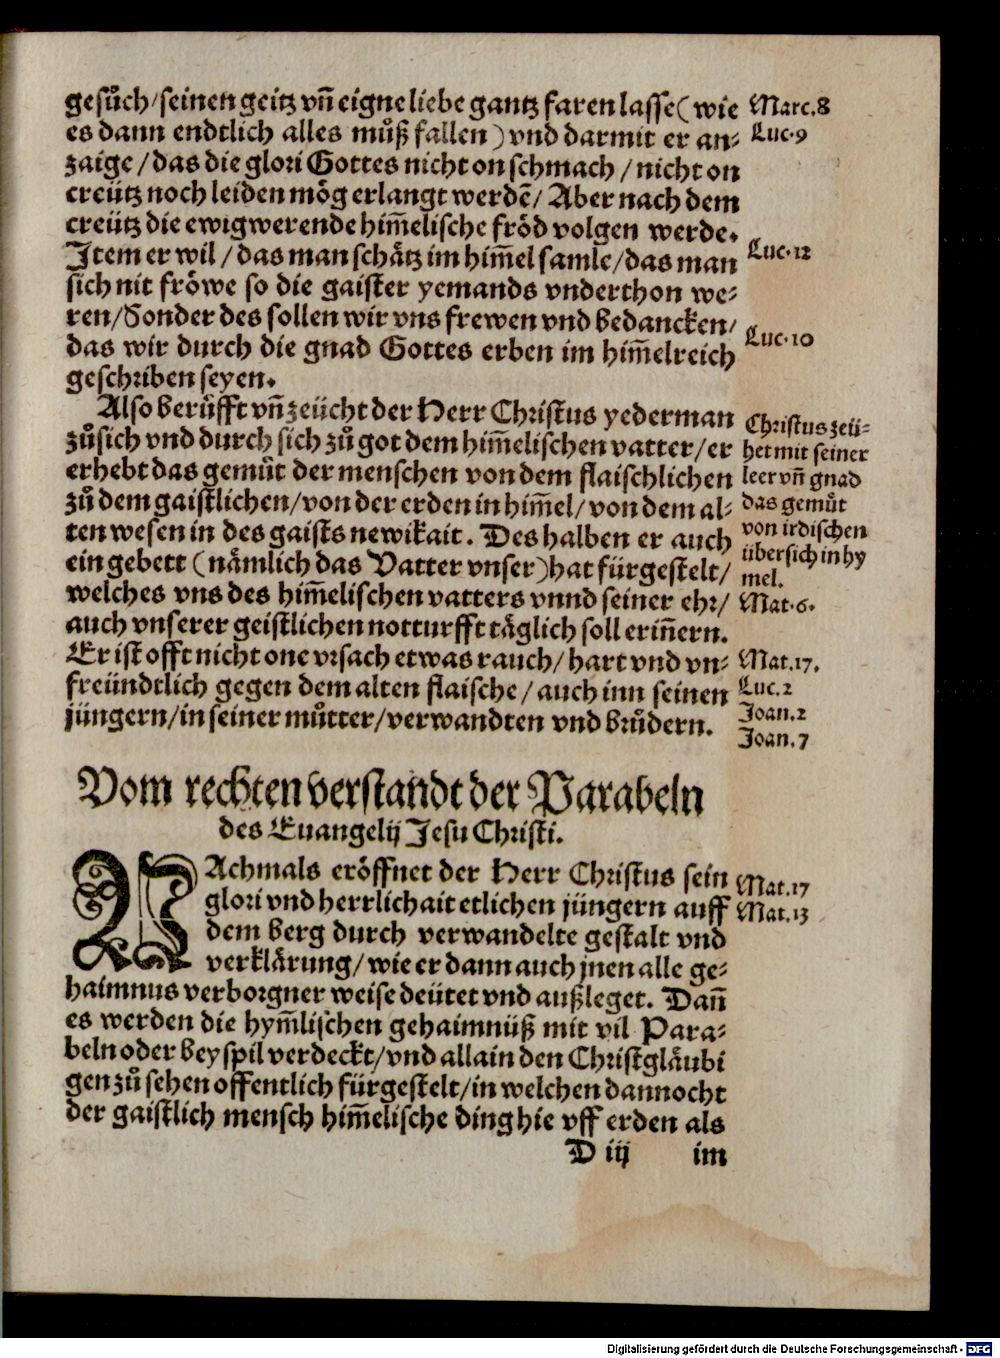 gesuͦch/seinen geitz vñ eigne liebe gantz faren lasse (wie
es dann endtlich alles muͦß fallen) vnd darmit er an-
zaige/das die glori Gottes nicht on schmach/nicht on
creütz noch leiden mög erlangt werdẽ/Aber nach dem
creütz die ewigwerende him̃elische fröd volgen werde.
Item er wil/das man schätz im him̃el samle/das man
sich nit fröwe so die gaister yemands vnderthon we-
ren/Sonder des sollen wir vns frewen vnd bedancken/
das wir durch die gnad Gottes erben im him̃elreich
geschriben seyen.
Marc.8
Luc.9
Luc.12
Luc.10
Also beruͤfft vñ zeücht der Herr Christus yederman
zuͦ sich vnd durch sich zuͦ got dem him̃elischen vatter/er
erhebt das gemuͤt der menschen von dem flaischlichen
zuͦ dem gaistlichen/von der erden in him̃el/von dem al-
ten wesen in des gaists newikait. Deshalben er auch
ein gebett (nämlich das Vatter vnser) hat fürgestelt/
welches vns des him̃elischen vatters vnnd seiner ehr/
auch vnserer geistlichen notturfft täglich soll eriñern.
Er ist offt nicht one vrsach etwas rauch/hart vnd vn-
freündtlich gegen dem alten flaische/auch inn seinen
jüngern/in seiner muͦtter/verwandten vnd bruͤdern.
Christus zeü-
het mit seiner
leer vñ gnad
das gemuͤt
von irdischen
übersich in hy
mel.
Mat.6.
Mat.17.
Luc.2
Joan.2
Joan.7
Vom rechten verstandt der Parabeln
des Euangelij Jesu Christi.
NAchmals eröffnet der Herr Christus sein
glori vnd herrlichait etlichen jüngern auff
dem berg durch verwandelte gestalt vnd
verklärung/wie er dann auch jnen alle ge-
haimnus verborgner weise deütet vnd außleget. Dañ
es werden die hym̃lischen gehaimnüß mit vil Para-
beln oder beyspil verdeckt/vnd allain den Christgläubi
gen zuͦ sehen offentlich fürgestelt/in welchen dannocht
der gaistlich mensch him̃elische ding hie vff erden als
Mat.17
Mat.13
D iij im
Digitalisierung gefördert durch die Deutsche Forschungsgemeinschaft - DFG